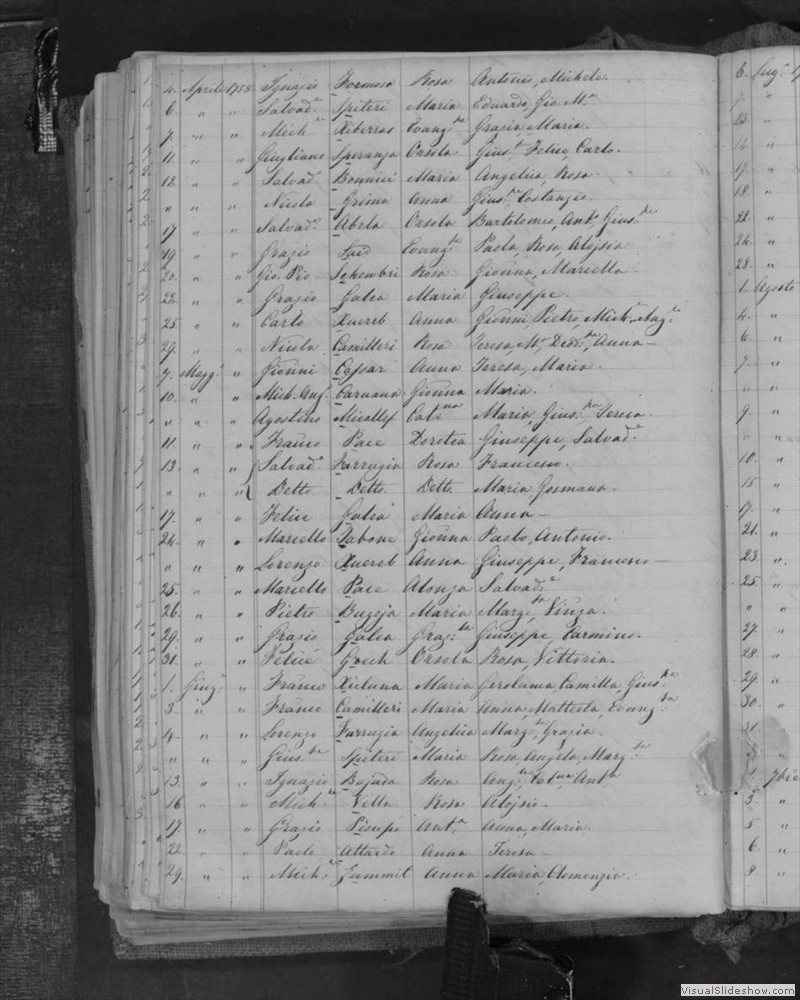 4. Aprile 1788. Ignazio Formosa Rosa Antonio, Michele
6. " " Salvad.e Spiteri Maria Eduardo, Gio. M.a
7. " " Mich.e Xiberras Evang.ta Grazia, Maria.
11. " " Giugliano Speranza Orsola Gius.e Felice, Carlo.
12. " " Salvad.e Bonnici Maria Angelica, Rosa.
" " " Nicola Grima Anna Gius.e Costanzio.
17 " " Salvad.e Abela Orsola Bartolomeo, Ant.o Gius.e
19. " " Grazio Said Evang.ta Paola, Rosa, Alojsia
20. " " Gio. Pio Schembri Rosa Gionna, Marcella
22. " " Grazio Galea Maria Giuseppe.
25. " " Carlo Xuereb Anna Gionni, Pietro, Mich. Ang.o
29. " " Nicola Camilleri Rosa Teresa, M.a, Anna
7. Magg.o " Gionni Cassar Anna Teresa, Maria
10. " " Mich. Ang.o Caruana Gionna Maria.
" " " Agostino Micallef Cat.na Maria, Gius.pa, Teresa.
11. " " Franco Pace Dorotea Giuseppe, Salvad.e
13. " " Salvad.e Farrugia Rosa Francesco.
" " " Detto Detto Detto Maria Gosmana
17. " " Felice Galea Maria Anna
24. " " Marcello Dabone Gionna Paolo, Antonio.
" " " Lorenzo Xuereb Anna Giuseppe, Francesco
25. " " Marcello Pace Alonza Salvad.e
26. " " Pietro Bugeja Maria Marg.ta, Vinza.
29. " " Grazio Galea Graz.a Giuseppe, Carmino.
31. " " Felice Grech Orsola Rosa, Vittoria.
1. Giug.o " Franco Xicluna Maria Gerolama, Camilla, Gius.pa
3. " " Franco Camilleri Maria Anna, Mattiola, Evang.ta
4. " " Lorenzo Farrugia Angelica Marg.ta Grazia.
" " " Gius.e Spiteri Maria Rosa, Angela, Marg.ta
13. " " Ignazio Bajada Rosa Ang.la, Cat.na Ant.a
16 " " Mich.e Vella Rosa Alojsio
17. " " Grazio Pisupo Ant.a Anna, Maria.
22. " " Paolo Attardo Anna Teresa
29. " " Mich.e Zammit Anna Maria, Clemenzia.
6. Lug.o
7. "
23. "
14. "
17. "
18. "
22. "
24. "
28. "
1. Agosto
4. "
6. "
7. "
" "
9. "
" "
10. "
15 "
17. "
21. "
23. "
25. "
" "
27. "
28. "
29. "
30. "
31. "
1. 7bre
3. "
5. "
6. "
8. "
VisualSlideshow.com